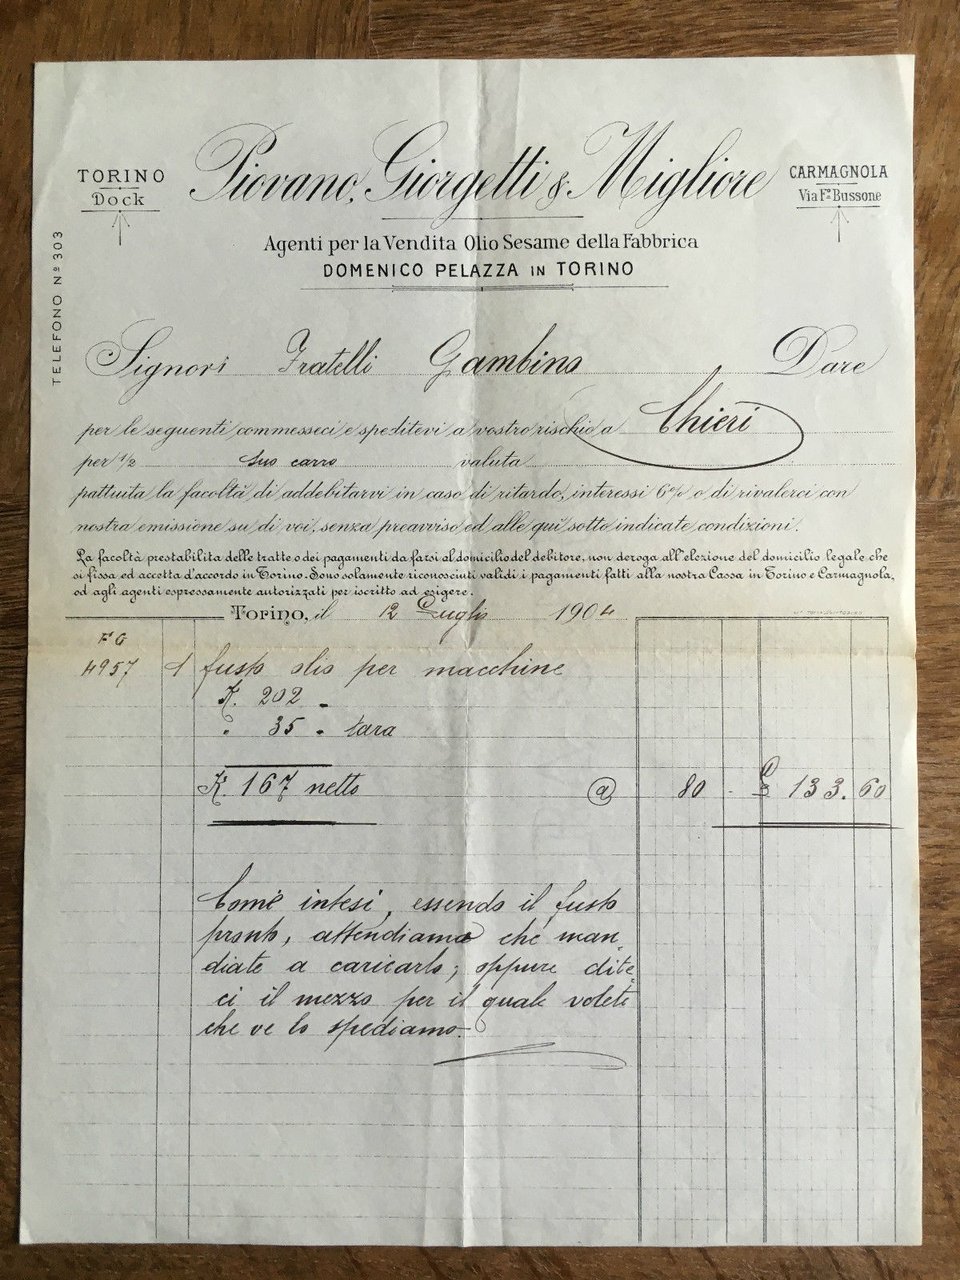 TORINO
Dock
Piovano, Giorgetti & Migliore
CARMAGNOLA
Via F.co Bussone
Agenti per la Vendita Olio Sesame della Fabbrica
DOMENICO PELAZZA IN TORINO
TELEFONO Nº 303
Signori Fratelli Gambino Dare
per le seguenti commesseci e speditevi a vostro rischio a Chieri
per 1/2 suo carro valuta
pattuita la facoltà di addebitarvi in caso di ritardo, interessi 6% o di rivalerci con
nostra emissione su di voi, senza preavviso ed alle qui sotto indicate condizioni.
La facoltà prestabilita delle tratte o dei pagamenti da farsi al domicilio del debitore, non deroga all'elezione del domicilio legale che
si fissa ed accetta d'accordo in Torino. Sono solamente riconosciuti validi i pagamenti fatti alla nostra Cassa in Torino e Carmagnola,
od agli agenti espressamente autorizzati per iscritto ad esigere.
Torino, il 12 Luglio 1904
FG
4957 1 fusto olio per macchine
K. 202 -
" 35 - tara
K. 167 netto @ 80 - £ 133.60
Come intesi, essendo il fusto
pronto, attendiamo che man
diate a caricarlo; oppure dite
ci il mezzo per il quale volete
che ve lo spediamo.